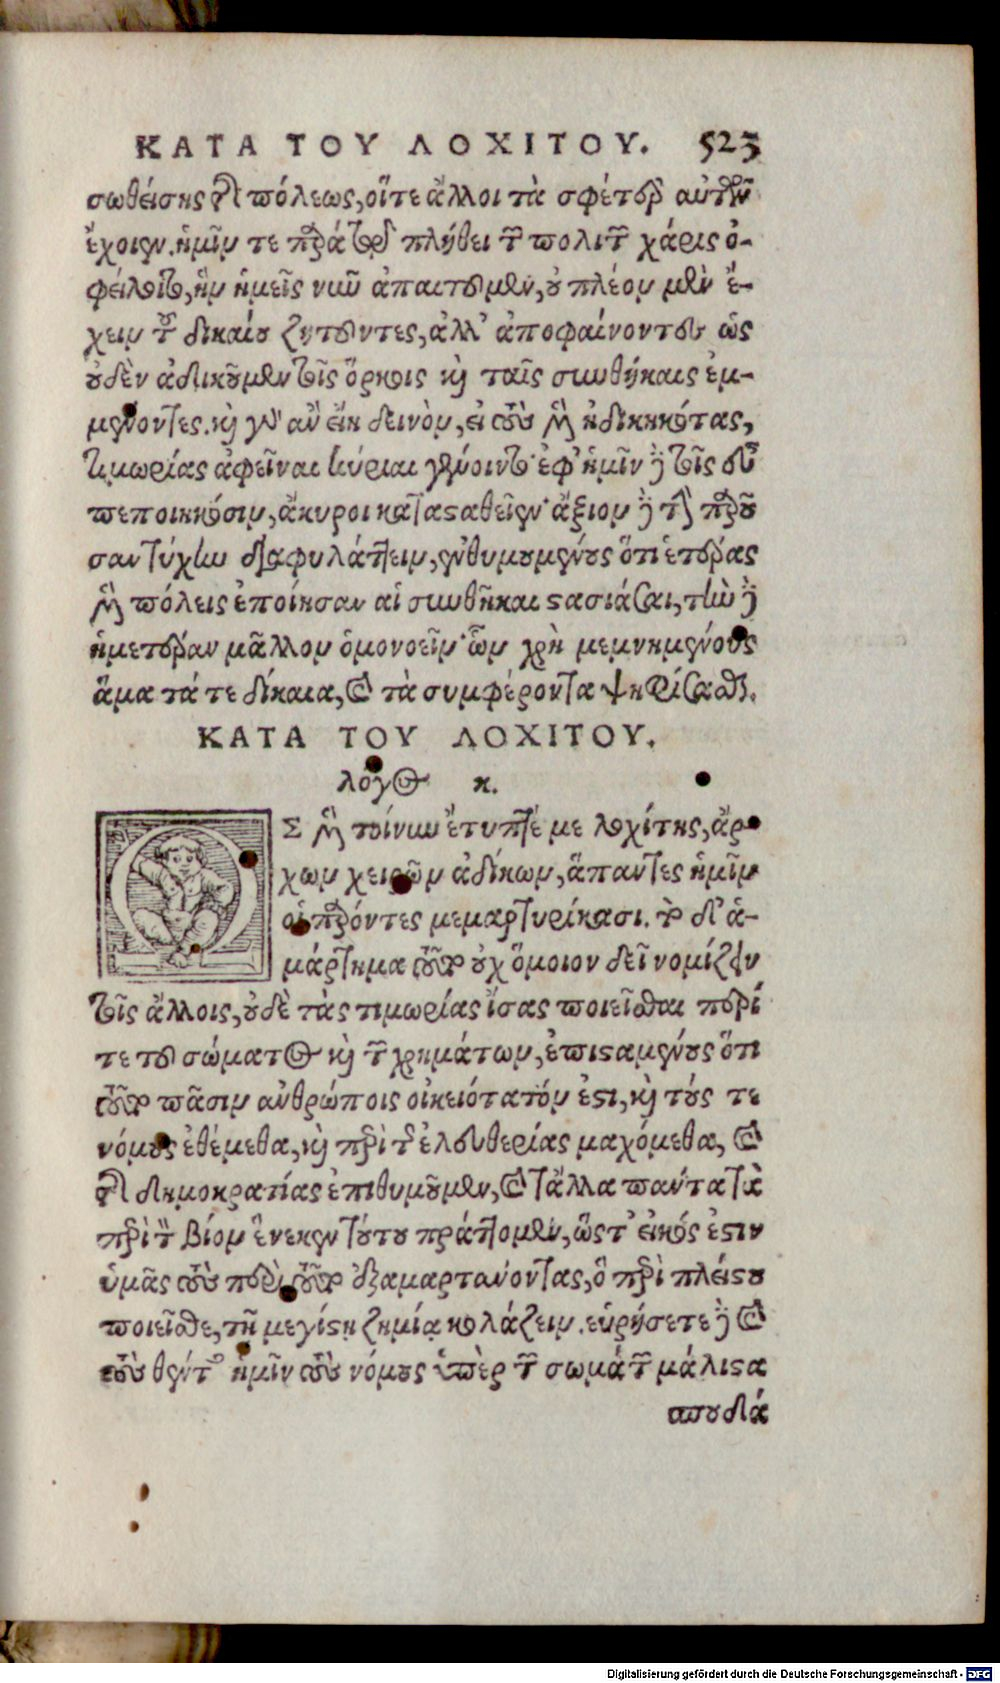 ΚΑΤΑ ΤΟΥ ΛΟΧΙΤΟΥ. 523
σωθείσης τῆς πόλεως, οἵτε ἄλλοι τὰ σφέτερ᾽ αὐτῶν
ἔχοιεν. ἡμῖν τε παρὰ τοῦ πλήθει τῶν πολιτῶν χάρις ὀ-
φείλοιτο, ἣν ἡμεῖς νῦν ἀπαιτοῦμεν, οὐ πλέον μὲν ἔ-
χειν τοῦ δικαίου ζητοῦντες, ἀλλ᾽ ἀποφαίνοντες ὡς
οὐδὲν ἀδικοῦμεν τοῖς ὅρκοις καὶ ταῖς συνθήκαις ἐμ-
μένοντες. καὶ γὰρ ἂν εἴη δεινὸν, εἰ τοὺς μὲν ἠδικηκότας,
τιμωρίας ἀφεῖναι κύριαι γένοιντο· ἐφ᾽ ἡμῖν δὲ τοῖς εὖ
πεποιηκόσιν, ἄκυροι κατασταθεῖεν· ἄξιον δὲ τὴν παροῦ
σαν τύχην διαφυλάττειν, ἐνθυμουμένους ὅτι ἑτέρας
μὲν πόλεις ἐποίησαν αἱ συνθῆκαι στασιάσαι, τὴν δὲ
ἡμετέραν μᾶλλον ὁμονοεῖν· ὧν χρὴ μεμνημένους
ἅμα τά τε δίκαια, καὶ τὰ συμφέροντα ψηφίσασθαι.
ΚΑΤΑ ΤΟΥ ΛΟΧΙΤΟΥ.
λόγος κ.
ΩΣ μὲν τοίνυν ἔτυπτέ με λοχίτης, ἄρ-
χων χειρῶν ἀδίκων, ἅπαντες ἡμῖν
οἱ παρόντες μεμαρτυρίκασι. τὸ δ᾽ ἁ-
μάρτημα τοῦτο οὐχ ὅμοιον δεῖ νομίζειν
τοῖς ἄλλοις, οὐδὲ τὰς τιμωρίας ἴσας ποιεῖσθαι περί
τε τοῦ σώματος καὶ τῶν χρημάτων, ἐπισταμένους ὅτι
τοῦτο πᾶσιν ἀνθρώποις οἰκειότατόν ἐστι, καὶ τούς τε
νόμους ἐθέμεθα, καὶ περὶ τῆς ἐλευθερίας μαχόμεθα, καὶ
τῆς δημοκρατίας ἐπιθυμοῦμεν, καὶ τἄλλα πάντα τὰ
περὶ τὸν βίον ἕνεκεν τούτου πράττομεν, ὥστ᾽ εἰκός ἐστιν
ὑμᾶς τοὺς περὶ τοῦτο ἐξαμαρτάνοντας, ὃ περὶ πλείστου
ποιεῖσθε, τῇ μεγίστῃ ζημίᾳ κολάζειν. εὑρήσετε δὲ καὶ
τοὺς θέντας ἡμῖν τοὺς νόμους ὑπὲρ τῶν σωμάτων μάλιστα
σπουδά
Digitalisierung gefördert durch die Deutsche Forschungsgemeinschaft - DFG